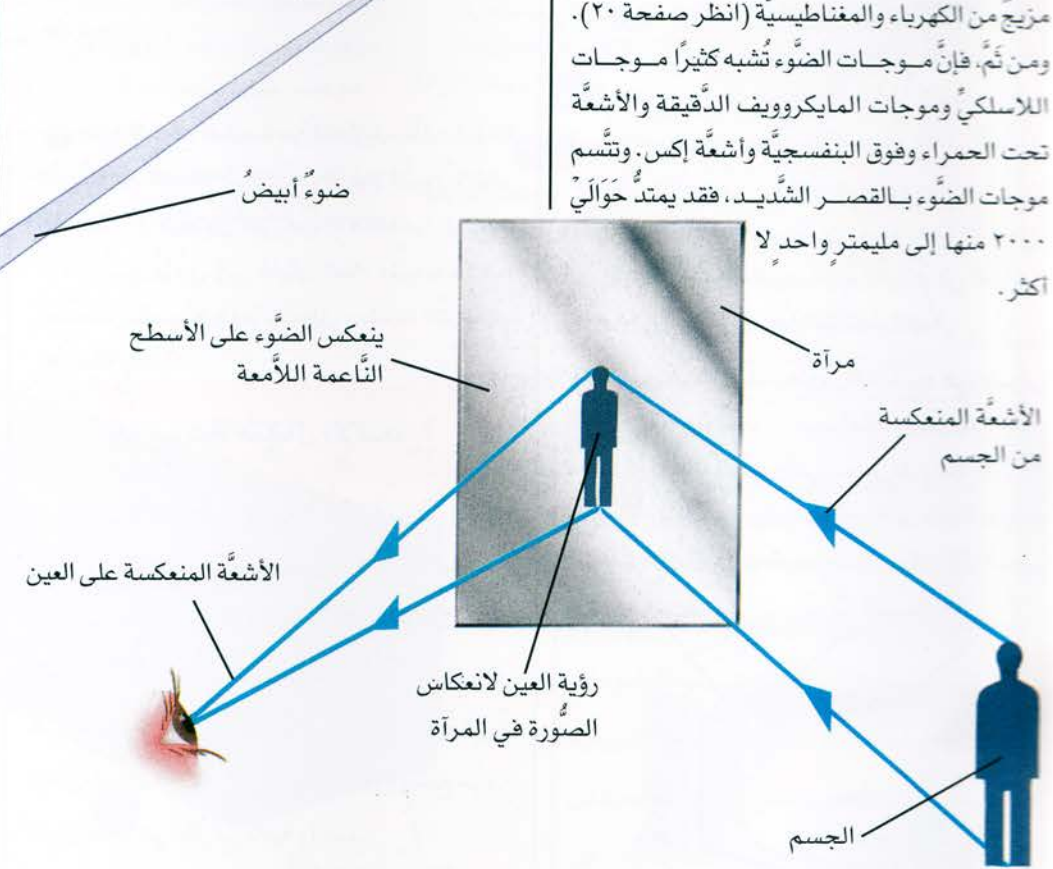 مزيجٌ من الكهرباء والمغناطيسيَّة (انظر صفحة ٢٠).
ومن ثَمَّ، فإنَّ موجات الضَّوء تُشبه كثيرًا موجات
اللاسلكيِّ وموجات المايكروويف الدَّقيقة والأشعَّة
تحت الحمراء وفوق البنفسجيَّة وأشعَّة إكس. وتتَّسم
موجات الضَّوء بالقصر الشَّديد، فقد يمتدُّ حَوَالَيْ
٢٠٠٠ منها إلى مليمترٍ واحدٍ لا
أكثر.
ضوءٌ أبيضُ
ينعكس الضَّوء على الأسطح
النَّاعمة اللاَّمعة
مرآة
الأشعَّة المنعكسة
من الجسم
الأشعَّة المنعكسة على العين
رؤية العين لانعكاس
الصُّورة في المرآة
الجسم